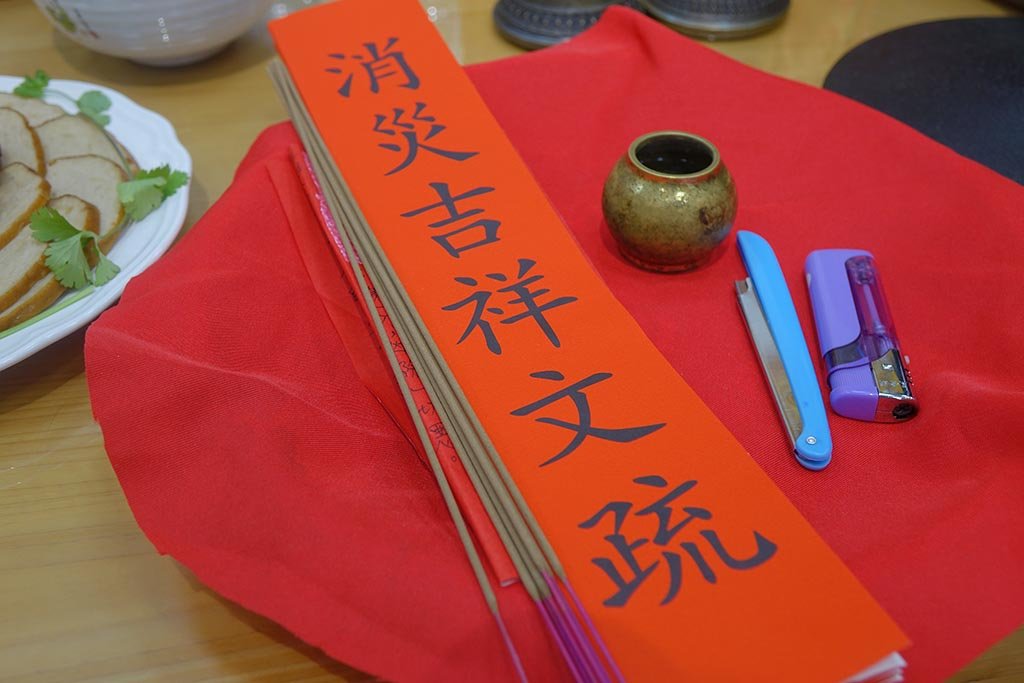 消災吉祥文疏